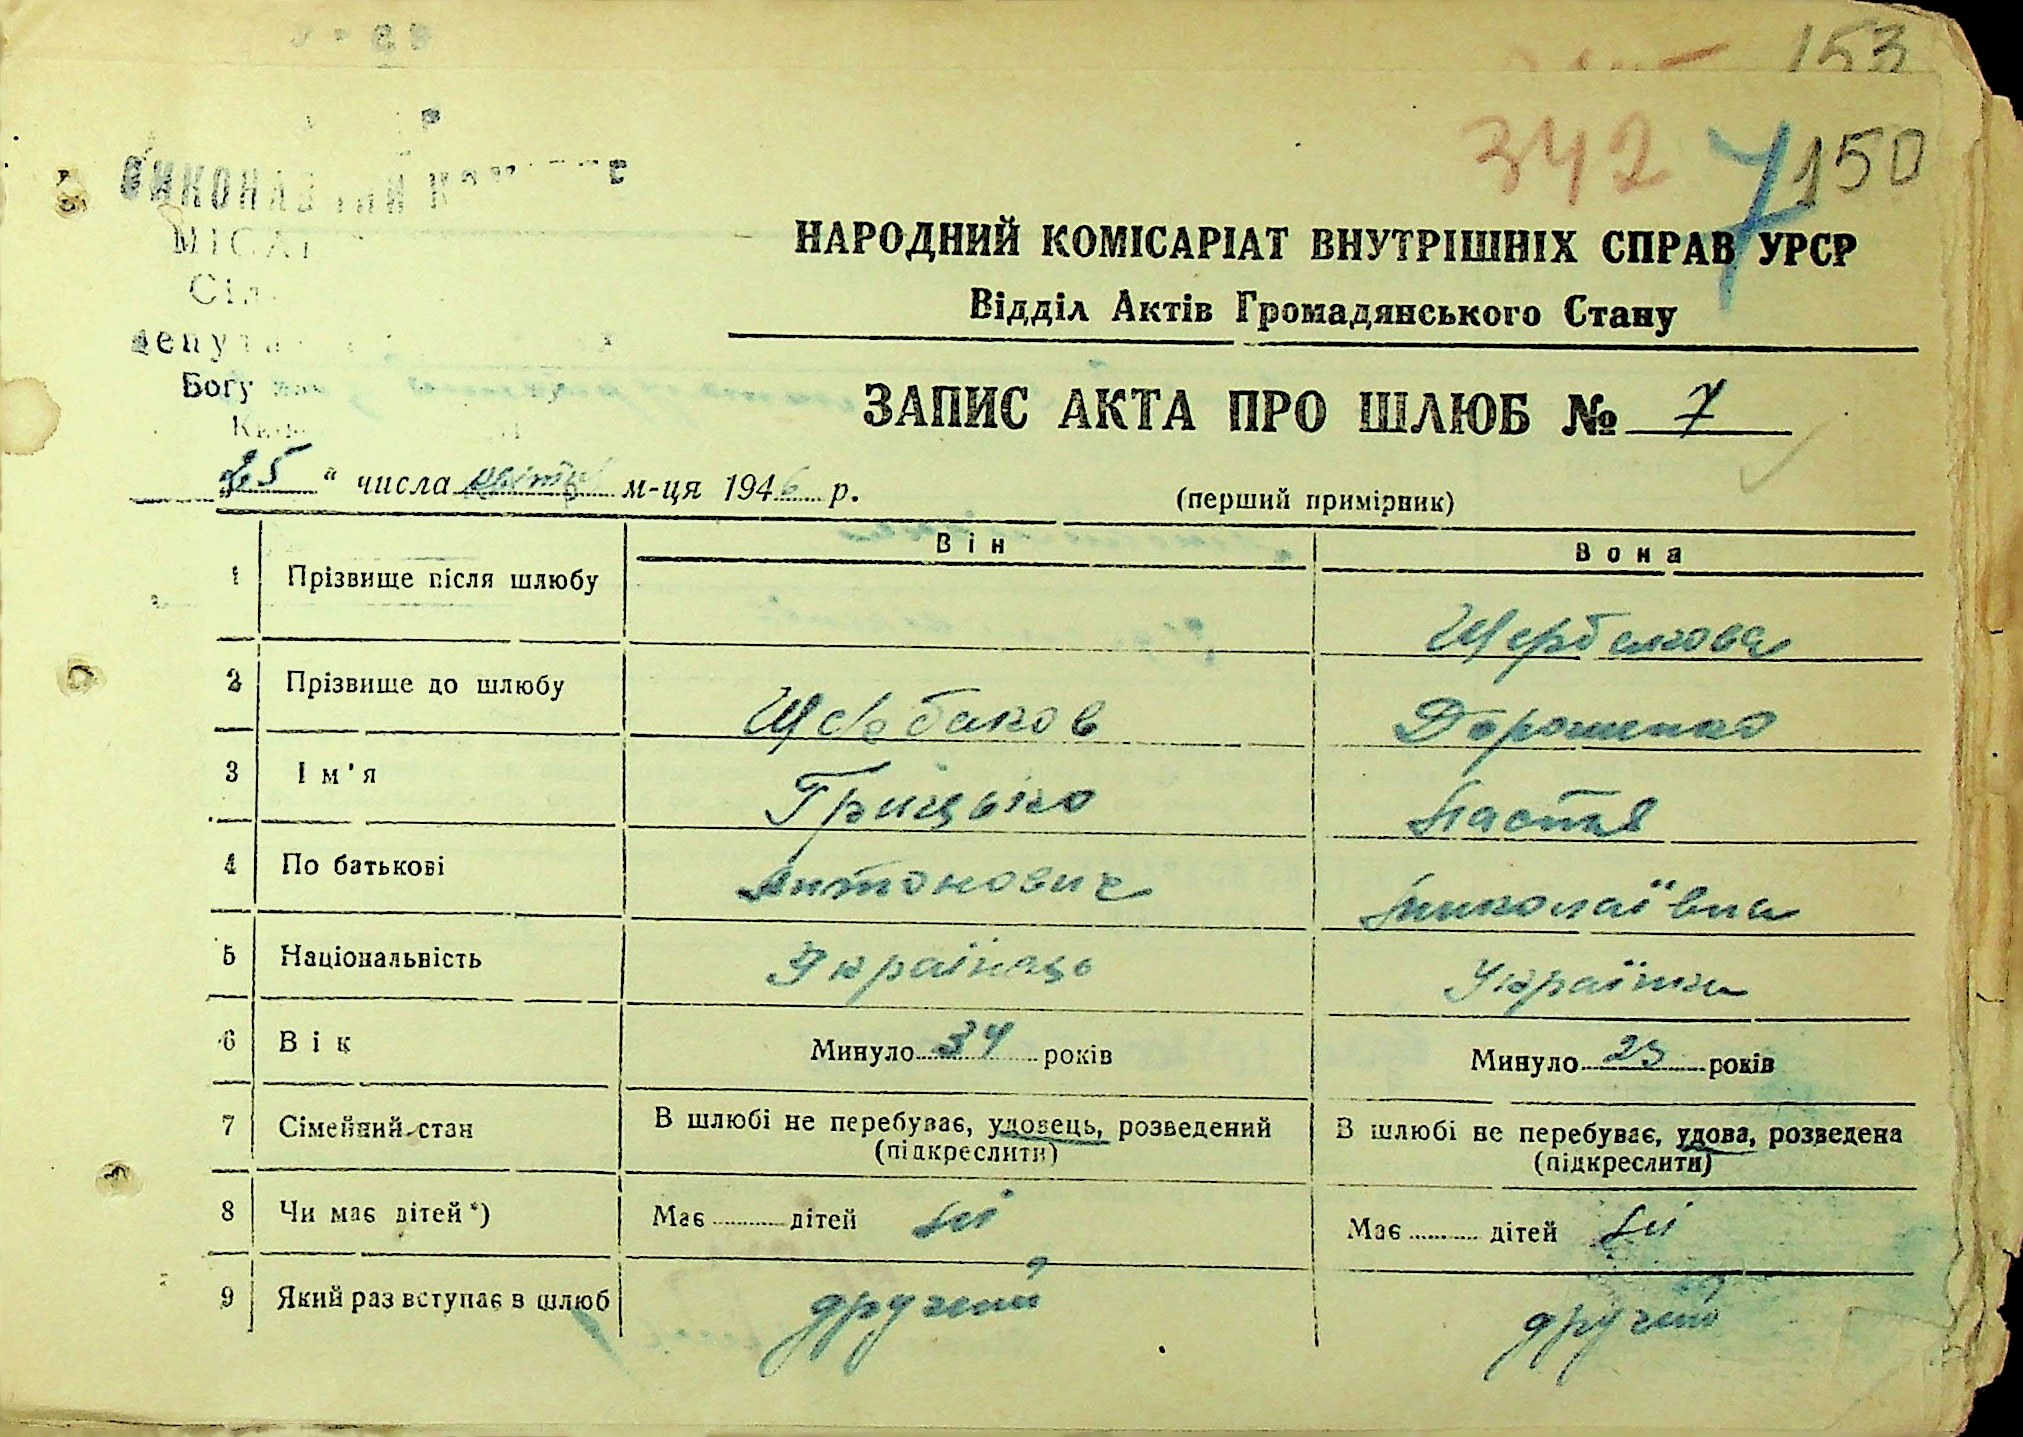 153
342 7 150
НАРОДНИЙ КОМІСАРІАТ ВНУТРІШНІХ СПРАВ УРСР
Відділ Актів Громадянського Стану
Богу
ЗАПИС АКТА ПРО ШЛЮБ № 7
25 " числа м-ця 1946 р.
(перший примірник)
Він Вона
1 Прізвище після шлюбу Щербакова
2 Прізвище до шлюбу Щербаков Дорошенко
3 Ім'я Грицько Настя
4 По батькові Антонович Миколаївна
5 Національність Українець Українка
6 Вік Минуло 34 років Минуло 23 років
7 Сімейний стан В шлюбі не перебуває, удовець, розведений В шлюбі не перебуває, удова, розведена
(підкреслити) (підкреслити)
8 Чи має дітей*) Має дітей Має дітей
9 Який раз вступає в шлюб другий другий